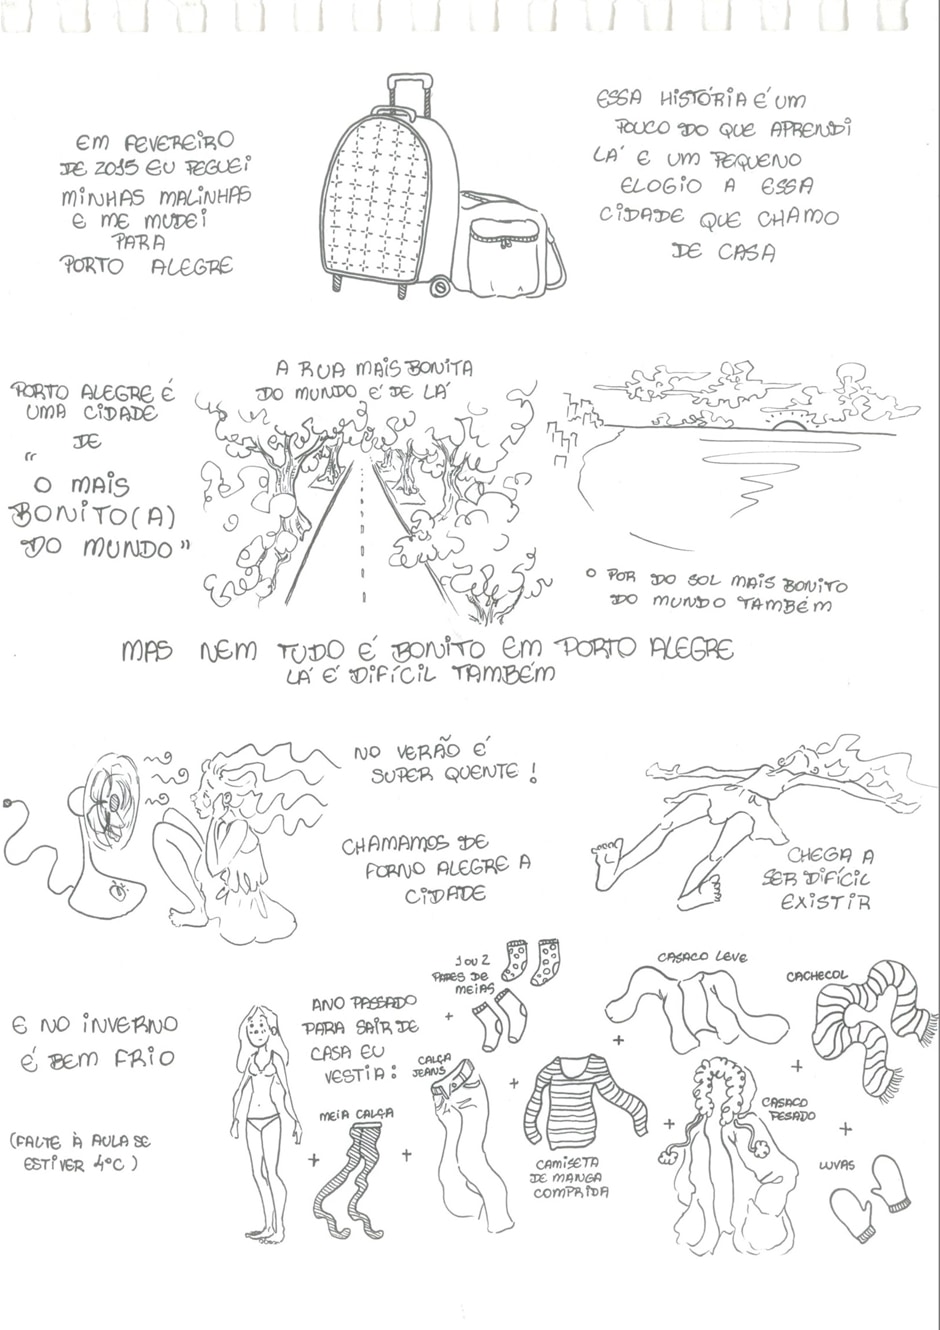 EM FEVEREIRO
DE 2015 EU PEGUEI
MINHAS MALINHAS
E ME MUDEI
PARA
PORTO ALEGRE
ESSA HISTÓRIA É UM
POUCO DO QUE APRENDI
LÁ E UM PEQUENO
ELOGIO A ESSA
CIDADE QUE CHAMO
DE CASA
PORTO ALEGRE É
UMA CIDADE
DE
"
O MAIS
BONITO(A)
DO MUNDO"
A RUA MAIS BONITA
DO MUNDO É DE LÁ
O POR DO SOL MAIS BONITO
DO MUNDO TAMBÉM
MAS NEM TUDO É BONITO EM PORTO ALEGRE
LÁ É DIFÍCIL TAMBÉM
NO VERÃO É
SUPER QUENTE!
CHAMAMOS DE
FORNO ALEGRE A
CIDADE
CHEGA A
SER DIFÍCIL
EXISTIR
E NO INVERNO
É BEM FRIO
(FALTE À AULA SE
ESTIVER 4°C)
ANO PASSADO
PARA SAIR DE
CASA EU
VESTIA:
+
MEIA CALÇA
+
CALÇA
JEANS
+
1 OU 2
PARES DE
MEIAS
+
CAMISETA
DE MANGA
COMPRIDA
+
CASACO LEVE
+
CASACO
PESADO
+
CACHECOL
+
LUVAS